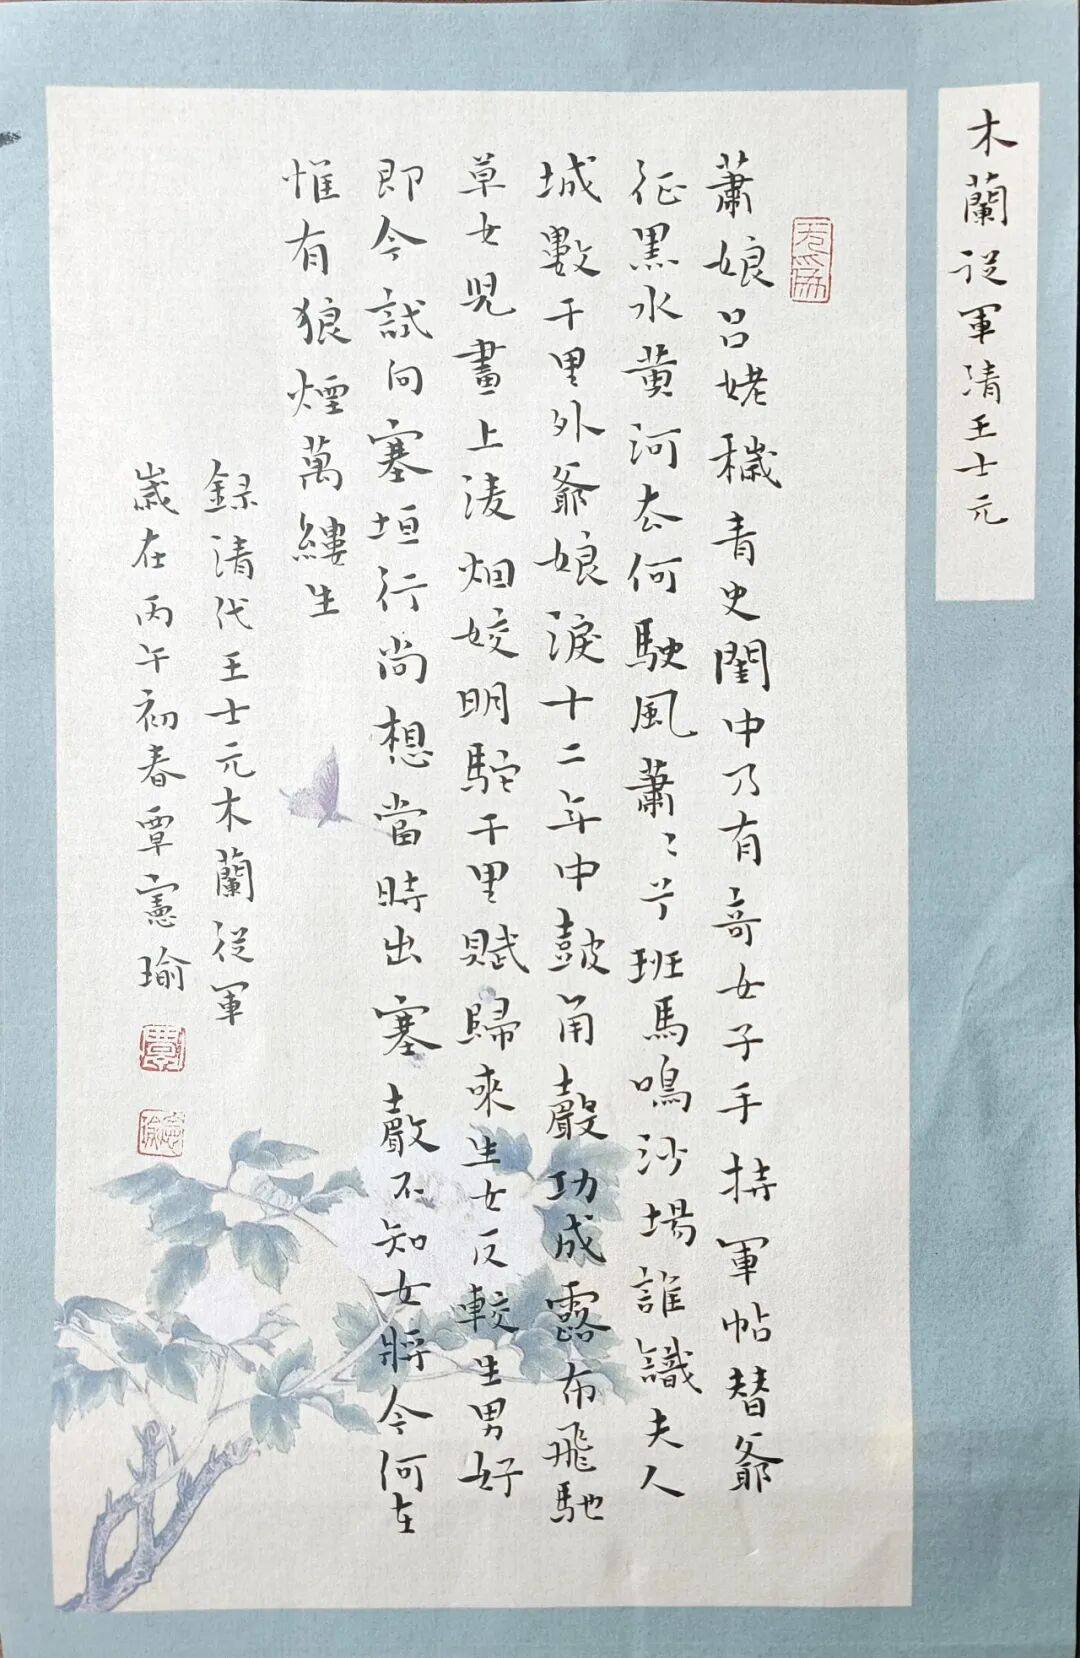 木蘭從軍清王士元
无為
蕭娘呂姥穢青史閨中乃有奇女子手持軍帖替爺
征黑水黃河去何駛風蕭〻兮班馬鳴沙場誰識夫人
城數千里外爺娘淚十二年中鼓角聲功成露布飛馳
草女兒畫上淩烟姣明駝千里賦歸來生女反較生男好
即今試向塞垣行尚想當時出塞聲不知女將今何在
惟有狼煙萬縷生
錄清代王士元木蘭從軍
歲在丙午初春覃憲瑜
覃
憲瑜